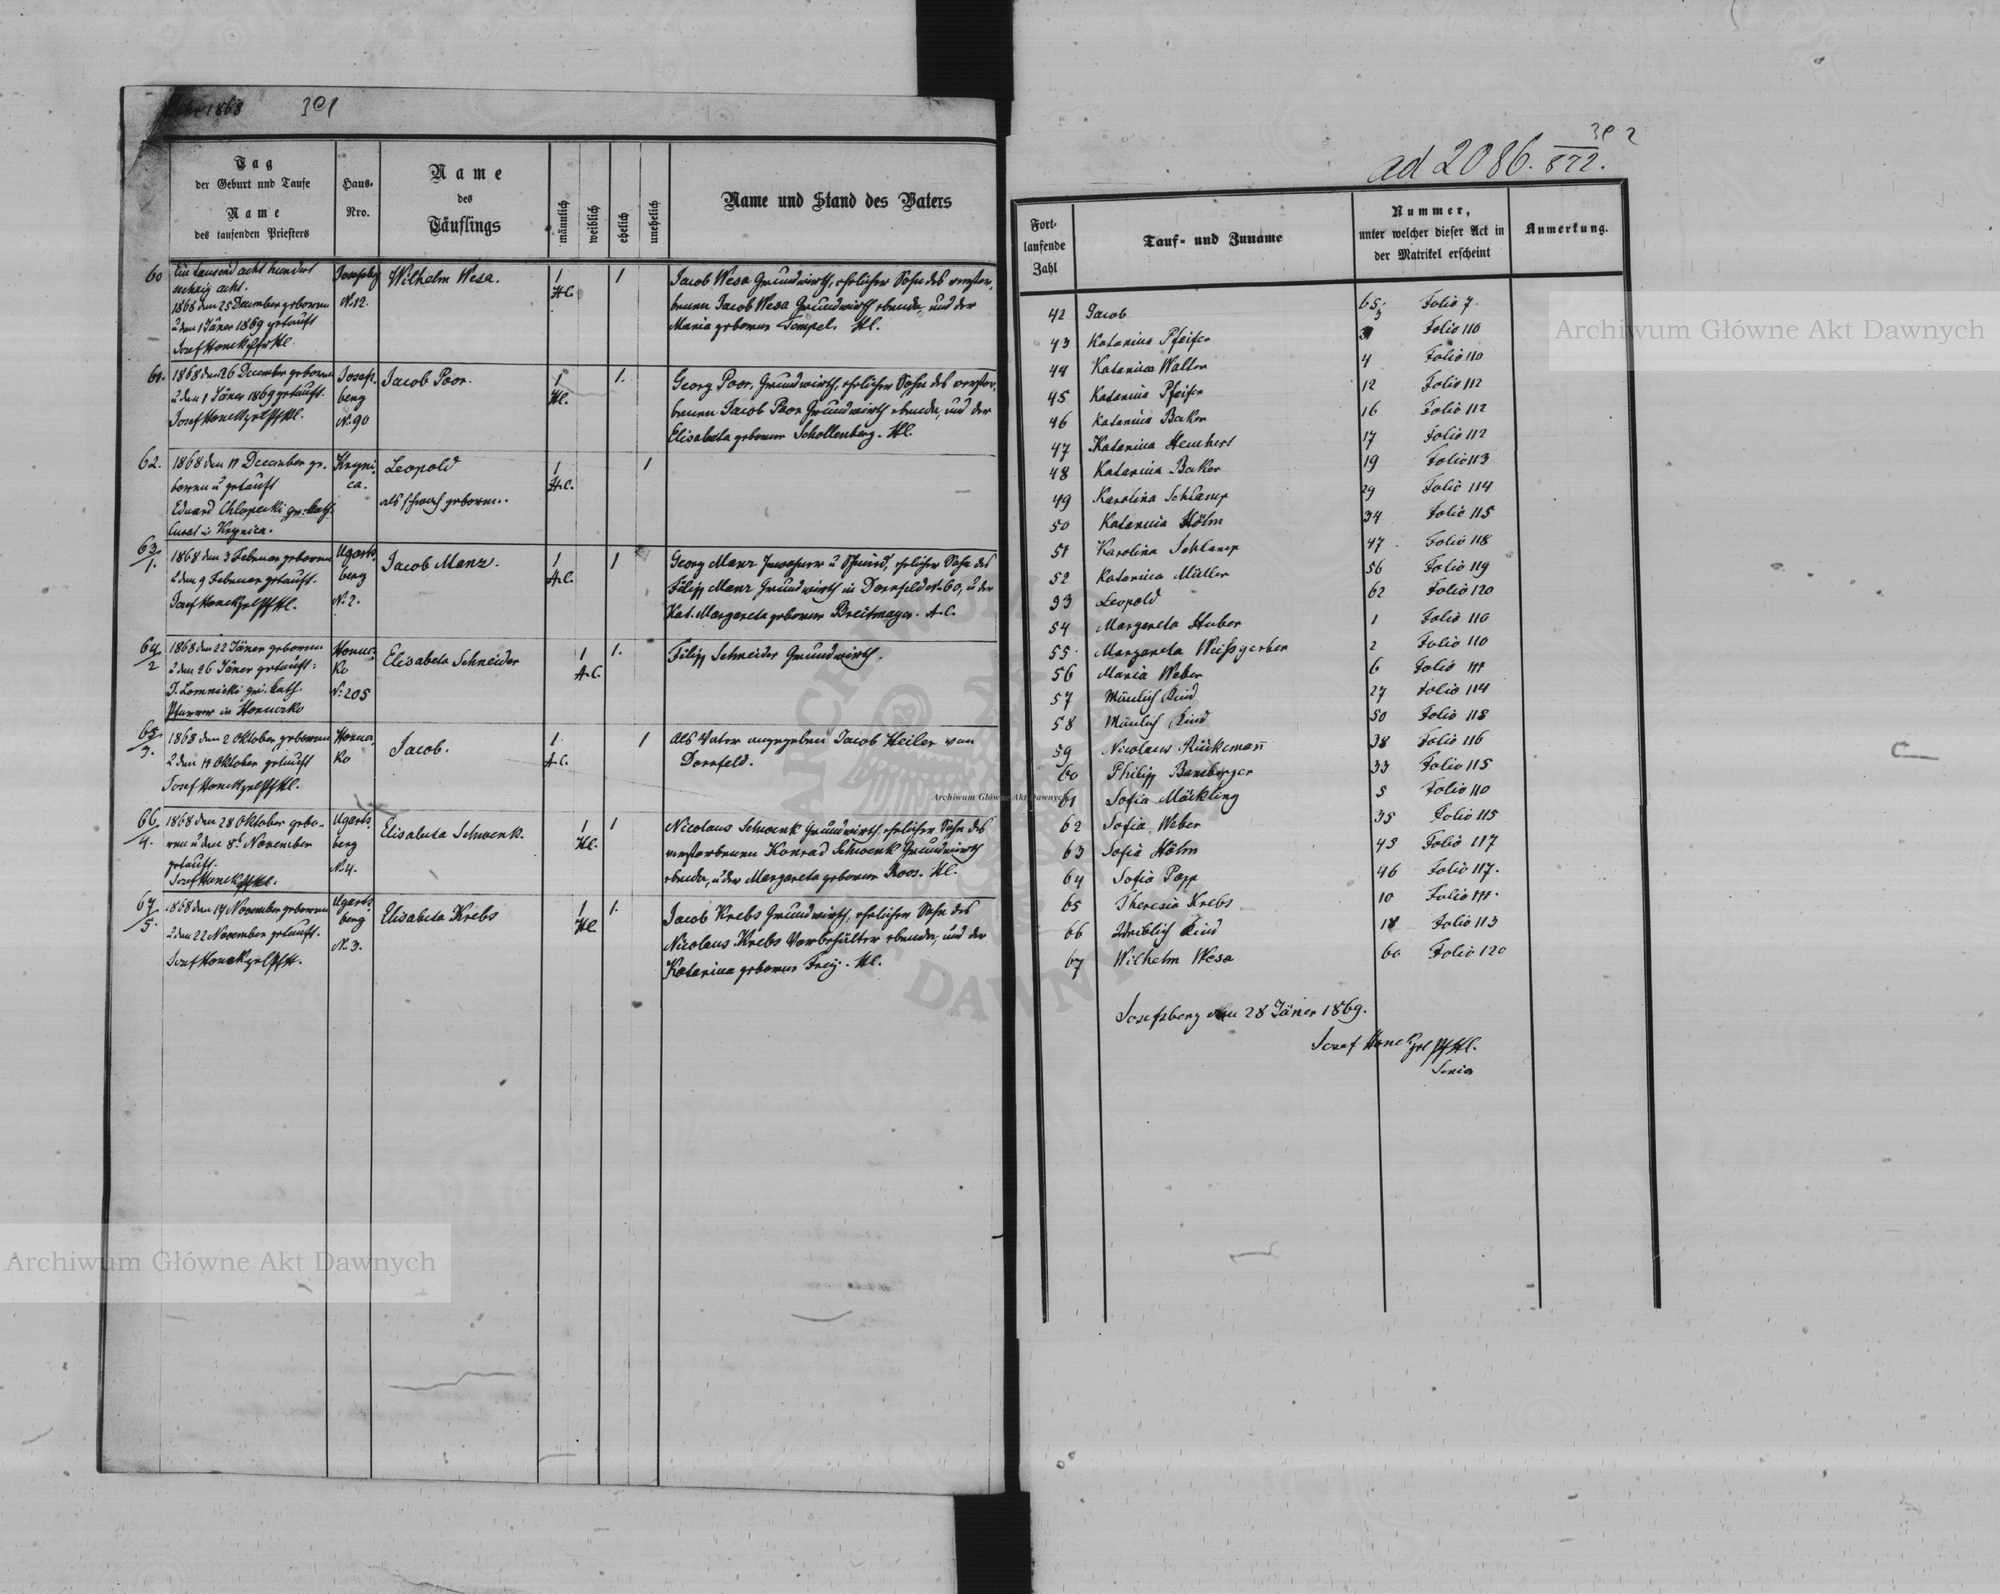 Jahr 1868 301
Tag
der Geburt und Taufe
Name
des taufenden Priesters
Haus-
Nro.
Name
des
Täuflings
männlich
weiblich
ehelich
unehelich
Name und Stand des Vaters
60 Ein tausend acht hundert
sechzig acht.
1868 den 25 December geboren
u den 1 Jäner 1869 getauft
Josef Honek
Josefsberg
N. 12.
Wilhelm Wesa.
1
H.C.
1
Jacob Wesa Grundwirth, ehelicher Sohn des verstor,
benen Jacob Wesa Grundwirth ebenda, und der
Maria geborene Tempel. H.C.
61. 1868 den 26 December geboren
u den 1 Jäner 1869 getauft.
Josef Honek
Josefs,
berg
N. 90
Jacob Poor.
1
H.C.
1.
Georg Poor, Grundwirth, ehelicher Sohn des verstor,
benen Jacob Poor Grundwirth ebenda, und der
Elisabeta geborene Schollenberg. H.C.
62. 1868 den 11 December ge,
boren u getauft
Eduard Chlopecki gr. kath.
Curat in Krynica.
Kryni,
ca.
Leopold
als schwach geboren..
1
A.C.
1
63/1. 1868 den 3 Februar geboren
u den 9 Februar getauft.
Josef Honek
Ugarts,
berg
N. 2.
Jacob Manz.
1
A.C.
1
Georg Manz Inwohner u Schmid, ehelicher Sohn des
Filipp Manz Grundwirth in Dornfeld N. 60, u der
Kat. Margareta geborene Breitmayer. A.C.
64/2 1868 den 22 Jäner geboren
u den 26 Jäner getauft:
J. Lomnicki gri. kath.
Pfarrer in Horucko
Horuc,
ko
N. 205
Elisabeta Schneider
1
A.C.
1.
Filipp Schneider Grundwirth.
65/3. 1868 den 2 Oktober geboren
u den 11 Oktober getauft
Josef Honek
Horuc,
ko
Jacob.
1
A.C.
1
Als Vater angegeben Jacob Heiler von
Dornfeld.
66/4. 1868 den 28 Oktober gebo-
ren u den 8t November
getauft.
Josef Honek
Ugarts,
berg
N. 4.
Elisabeta Schwenk.
1
H.C.
1
Nicolaus Schwenk Grundwirth, ehelicher Sohn des
verstorbenen Konrad Schwenk Grundwirth
ebenda, u der Margareta geborene Roos. H.C.
67/5. 1868 den 17 November geboren
u den 22 November getauft.
Josef Honek
Ugarts,
berg
N. 3.
Elisabeta Krebs
1
H.C.
1.
Jacob Krebs Grundwirth, ehelicher Sohn des
Nicolaus Krebs Vorbehälter ebenda, und der
Katarina geborene Frey. H.C.
302
ad 2086. 872.
Fort-
laufende
Zahl
Tauf- und Zuname
Nummer,
unter welcher dieser Act in
der Matrikel erscheint
Anmerkung.
42 Jacob 65/3 Folio 7.
43 Katarina Pfeifer 3 Folio 110
44 Katarina Walter 4 Folio 110
45 Katarina Pfeifer 12 Folio 112
46 Katarina Baker 16 Folio 112
47 Katarina Heuchert 17 Folio 112
48 Katarina Baker 19 Folio 113
49 Karolina Schlamp 29 Folio 114
50 Katarina Hölm 34 Folio 115
51 Karolina Schlamp 47 Folio 118
52 Katarina Müller 56 Folio 119
53 Leopold 62 Folio 120
54 Margareta Huber 1 Folio 110
55 Margareta Weißgerber 2 Folio 110
56 Maria Weber 6 Folio 111
57 Mänlich Kind 27 Folio 114
58 Mänlich Kind 50 Folio 118
59 Nicolaus Rückemañ 38 Folio 116
60 Philipp Bamberger 33 Folio 115
61 Sofia Möckling 5 Folio 110
62 Sofia Weber 35 Folio 115
63 Sofia Hölm 45 Folio 117
64 Sofia Popp 46 Folio 117.
65 Theresia Krebs 10 Folio 111.
66 Weiblich Kind 18 Folio 113
67 Wilhelm Wesa 60 Folio 120
Josefsberg den 28 Jäner 1869.
Josef Honek
Senior
Archiwum Główne Akt Dawnych
Archiwum Główne Akt Dawnych
Archiwum Główne Akt Dawnych